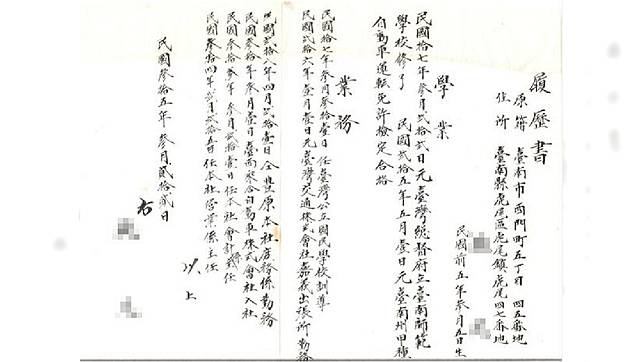 履歷書
原籍 臺南市西門町五丁目四五番地
住所 臺南縣虎尾區虎尾鎮虎尾四七番地
民國前五年參月五日生
學業
民國拾七年參月貳拾貳日元臺灣總督府立臺南師範
學校修了 民國貳拾五年五月壹日元臺南州甲種
自動車運転免許檢定合格
業務
民國拾七年參月參拾壹日 任臺灣公立國民學校訓導
民國貳拾六年壹月壹日元臺灣交通株式會社嘉義出張所勤務
民國貳拾八年四月貳拾壹日 全豐原本社庶務係勤務
民國參拾年參月壹日臺南聚合自動車株式會社入社
民國參拾參年參月貳拾壹日任本社會計主任
民國參拾四年貳月貳拾五日任本社營業係主任
以上
民國參拾五年參月貳拾貳日
右